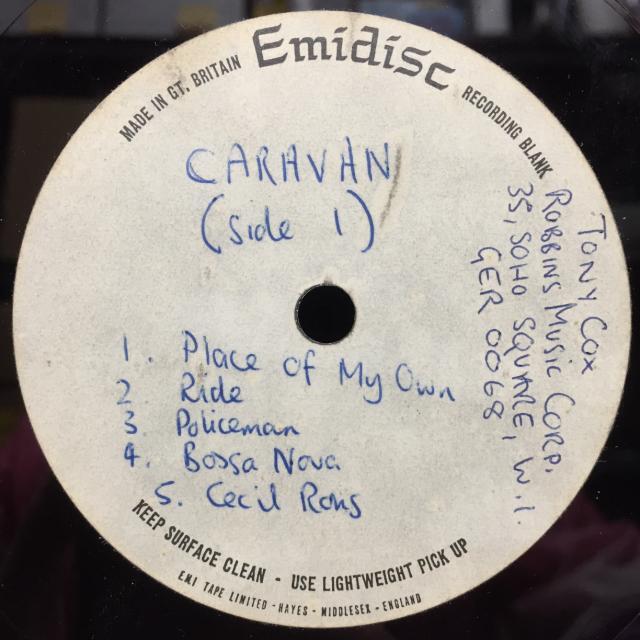 MADE IN GT. BRITAIN Emidisc RECORDING BLANK
CARAVAN
(Side 1)
1. Place of My Own
2 Ride
3 Policeman
4. Bossa Nova
5. Cecil Rons
TONY COX
ROBBINS MUSIC CORP.
35, SOHO SQUARE, W.1.
GER 0068
KEEP SURFACE CLEAN - USE LIGHTWEIGHT PICK UP
E.M.I TAPE LIMITED - HAYES - MIDDLESEX - ENGLAND